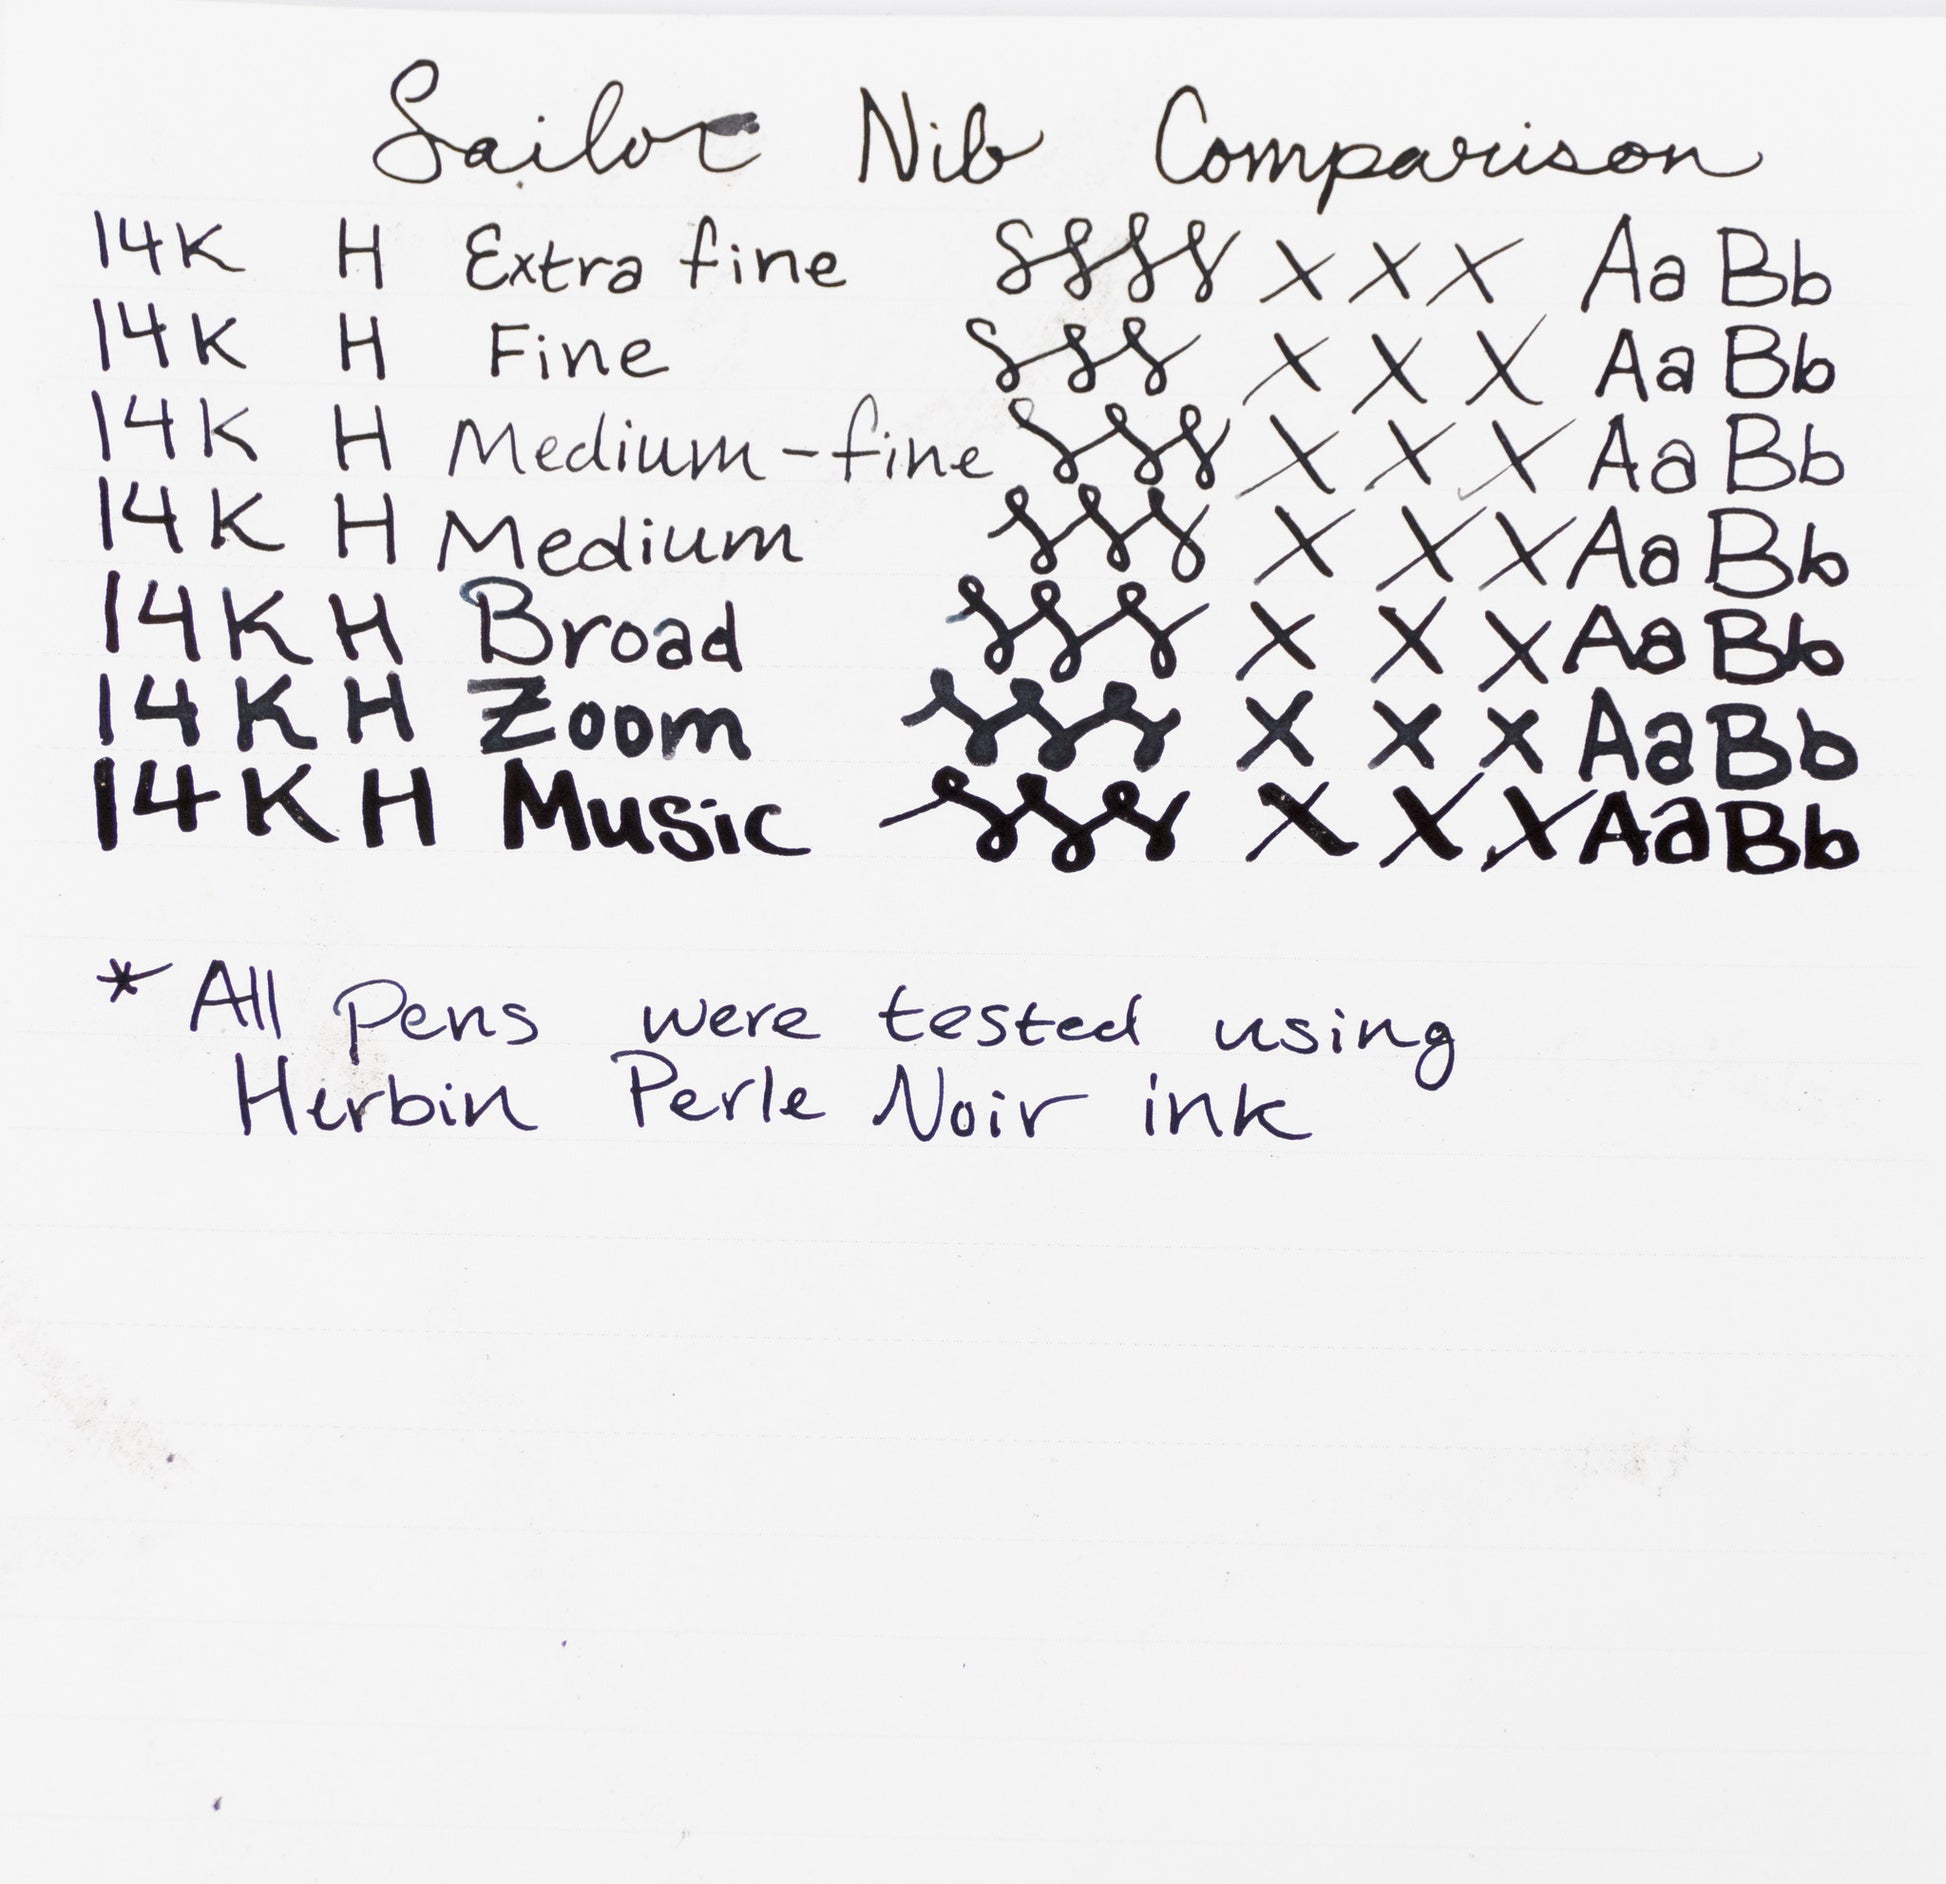 Sailor Nib Comparison
14K H Extra fine ssss x x x Aa Bb
14K H Fine sss x x x Aa Bb
14K H Medium-fine sss x x x Aa Bb
14K H Medium sss x x x Aa Bb
14K H Broad sss x x x Aa Bb
14K H Zoom sss x x x Aa Bb
14K H Music sss x x x Aa Bb
* All pens were tested using
Herbin Perle Noir ink